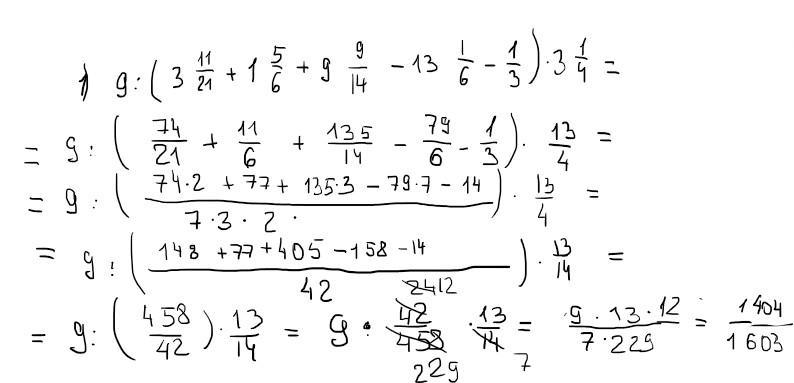 1) 9 : ( 3 11/21 + 1 5/6 + 9 9/14 - 13 1/6 - 1/3 ) · 3 1/4 =
= 9 : ( 74/21 + 11/6 + 135/14 - 79/6 - 1/3 ) · 13/4 =
= 9 : ( (74·2 + 77 + 135·3 - 79·7 - 14) / (7·3·2·) ) · 13/4 =
= 9 : ( (148 + 77 + 405 - 158 - 14) / 42 ) · 13/14 =
= 9 : ( 458/42 ) · 13/14 = 9 · 42/458 · 13/14 = (9 · 13 · 12) / (7 · 229) = 1404/1603
2412
229 7